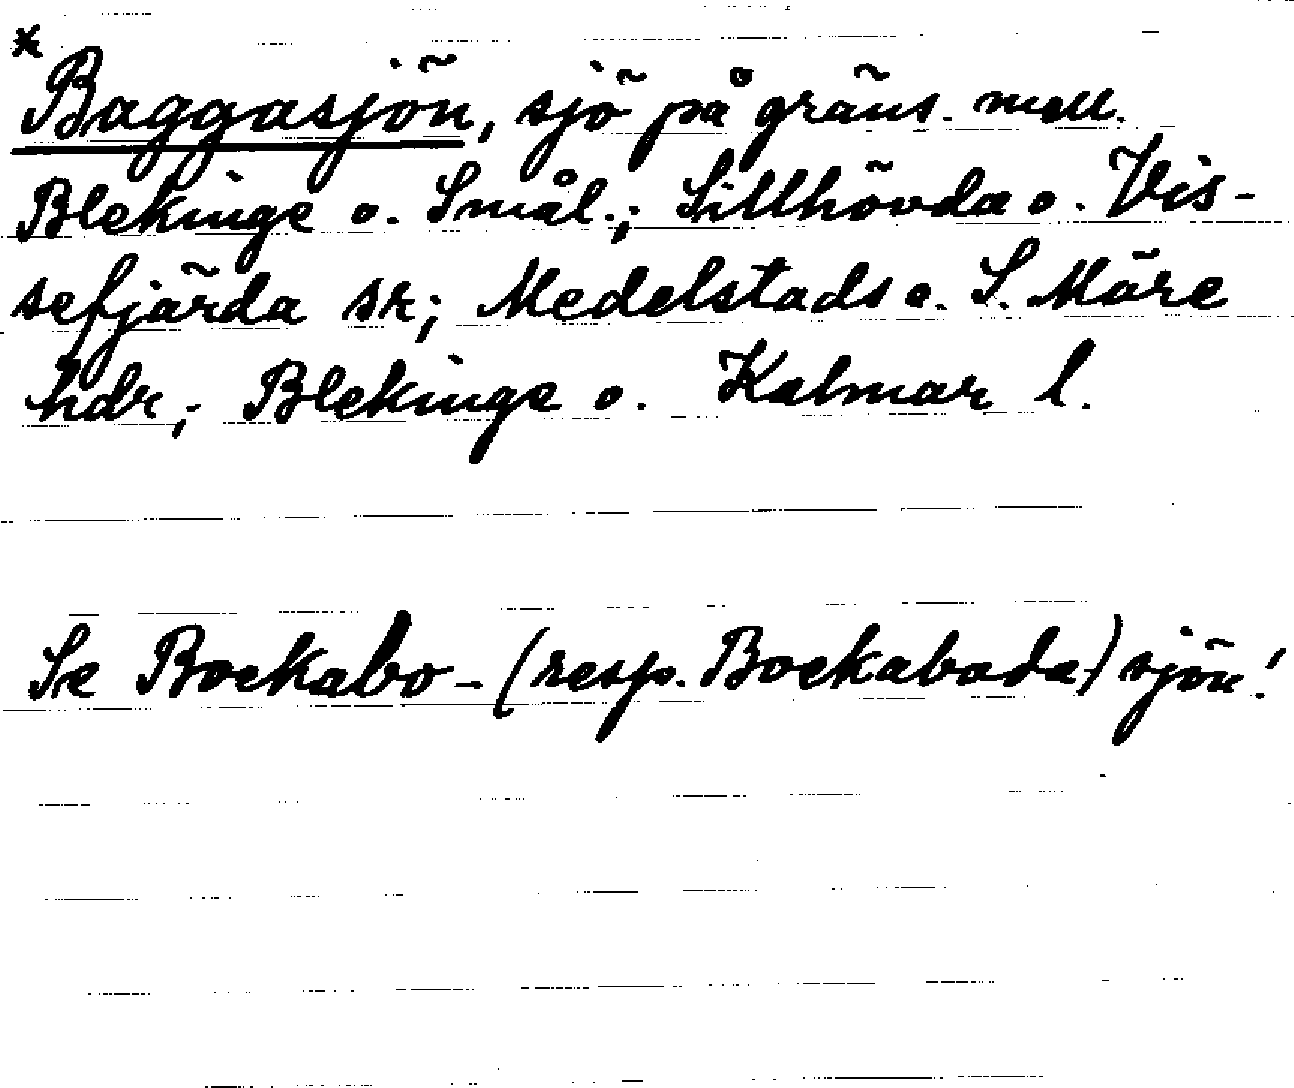 *Baggasjön, sjö på gräns. mell.
Blekinge o. Smål.; Sillhövda o. Vis-
sefjärda sk; Medelstads o. S. Möre
hdr; Blekinge o. Kalmar l.
Se Bockabo- (resp. Bockaboda-) sjön!